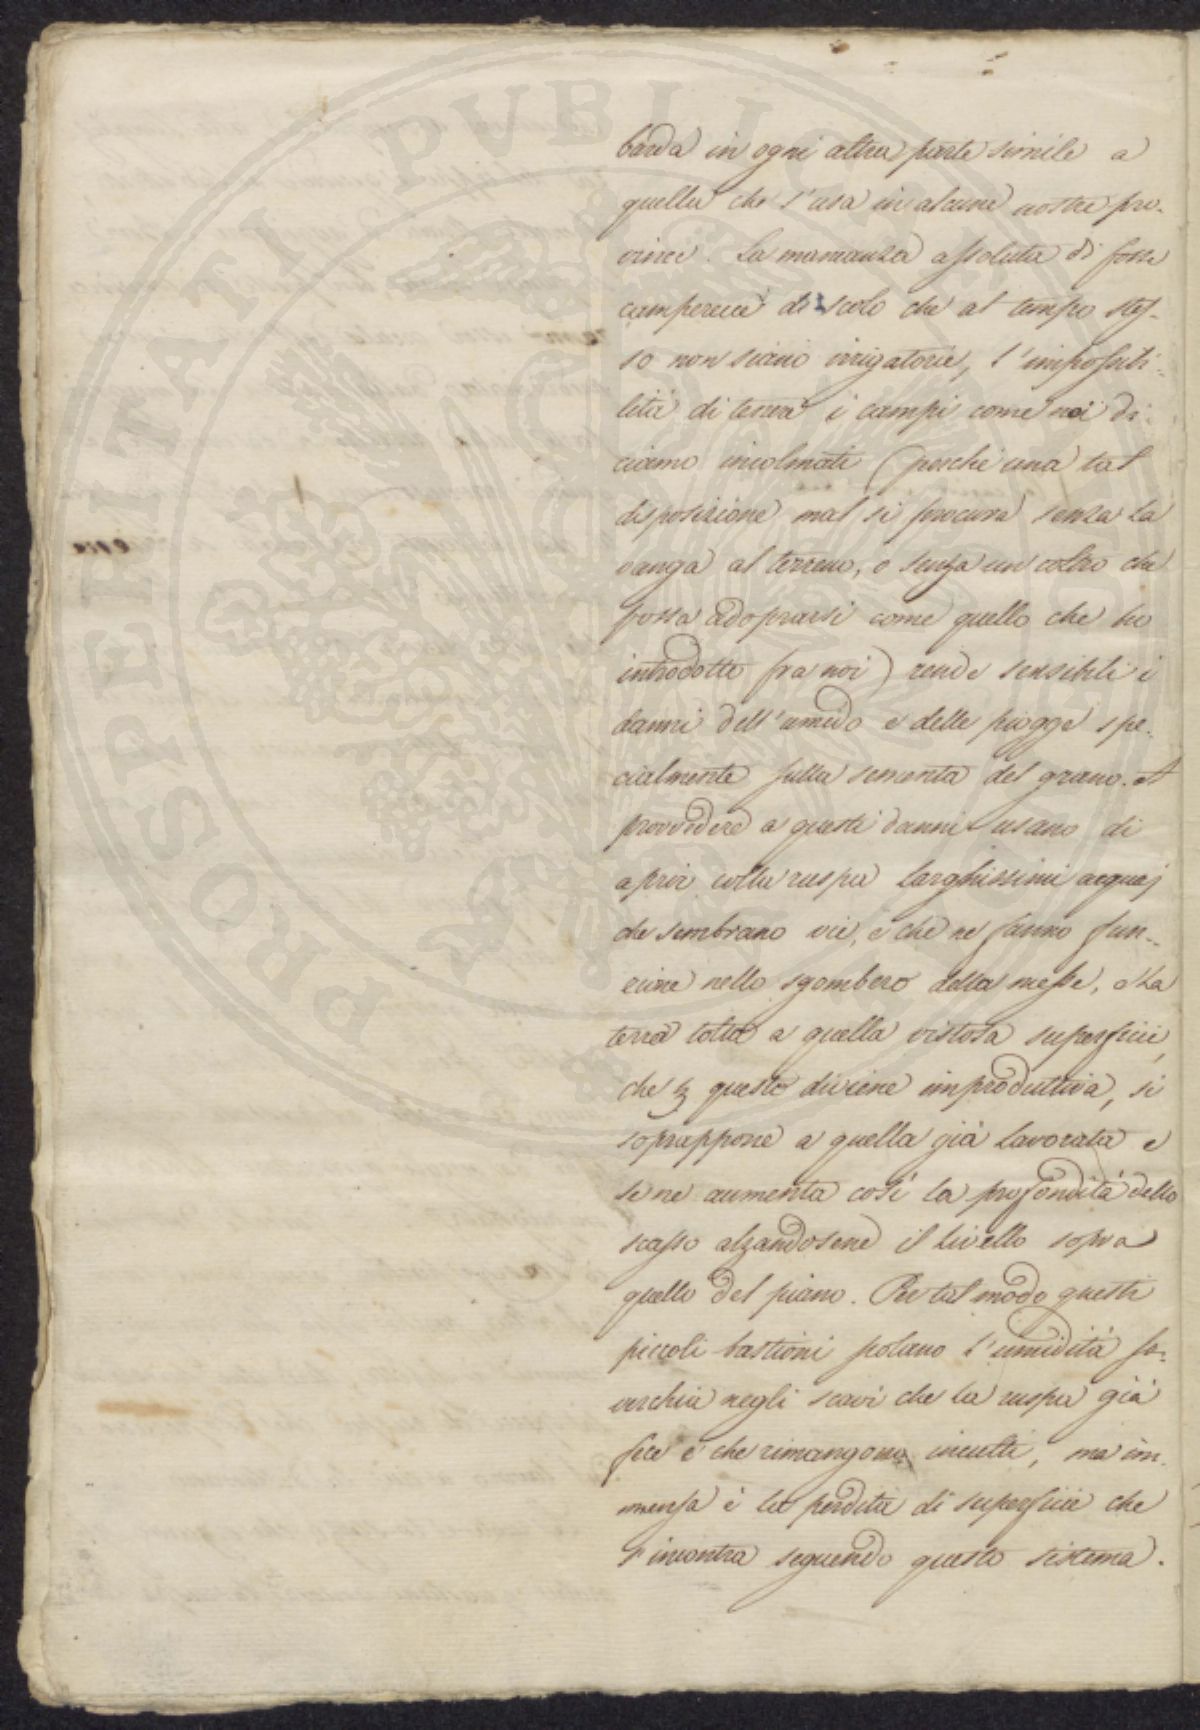 barda in ogni altra parte simile a
quella che s'usa in alcune nostre pro-
vince. La mancanza assoluta di fosse
camperecce di scolo che al tempo stes-
so non siano irrigatorie, l'impossibi-
lità di tenere i campi come noi di-
ciamo incolmati (poiché una tal
disposizione mal si procura senza la
vanga al terreno, o senza un coltro che
possa adoprarsi come quello che ho
introdotto fra noi) rende sensibili i
danni dell'umido e delle piogge spe-
cialmente sulla sementa del grano. A
provvedere a questi danni usano di
aprir colla ruspa larghissimi acquaj
che sembrano vie, e che ne fanno fun-
zione nello sgombero della messe, e la
terra tolta a quella vistosa superficie,
che per questo diviene improduttiva, si
soprappone a quella già lavorata e
se ne aumenta così la profondità dello
scasso alzandosene il livello sopra
quello del piano. Per tal modo questi
piccoli bastioni scolano l'umidità so-
verchia negli scavi che la ruspa già
fece e che rimangono inculti, ma im-
mensa è la perdita di superficie che
s'incontra seguendo questo sistema.
PROSPERITATI PUBLICAE